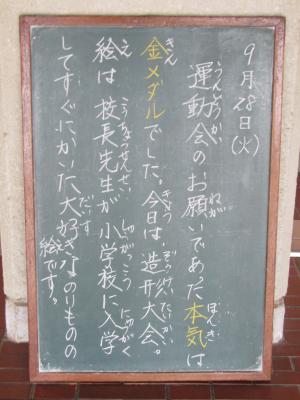 9月28日(火)
運動会のお願いであだ本気は
金メダルでした。今日は、造形大会。
絵は校長先生が小学校に入学
してすぐにかいた大好きなのりものの
絵です。